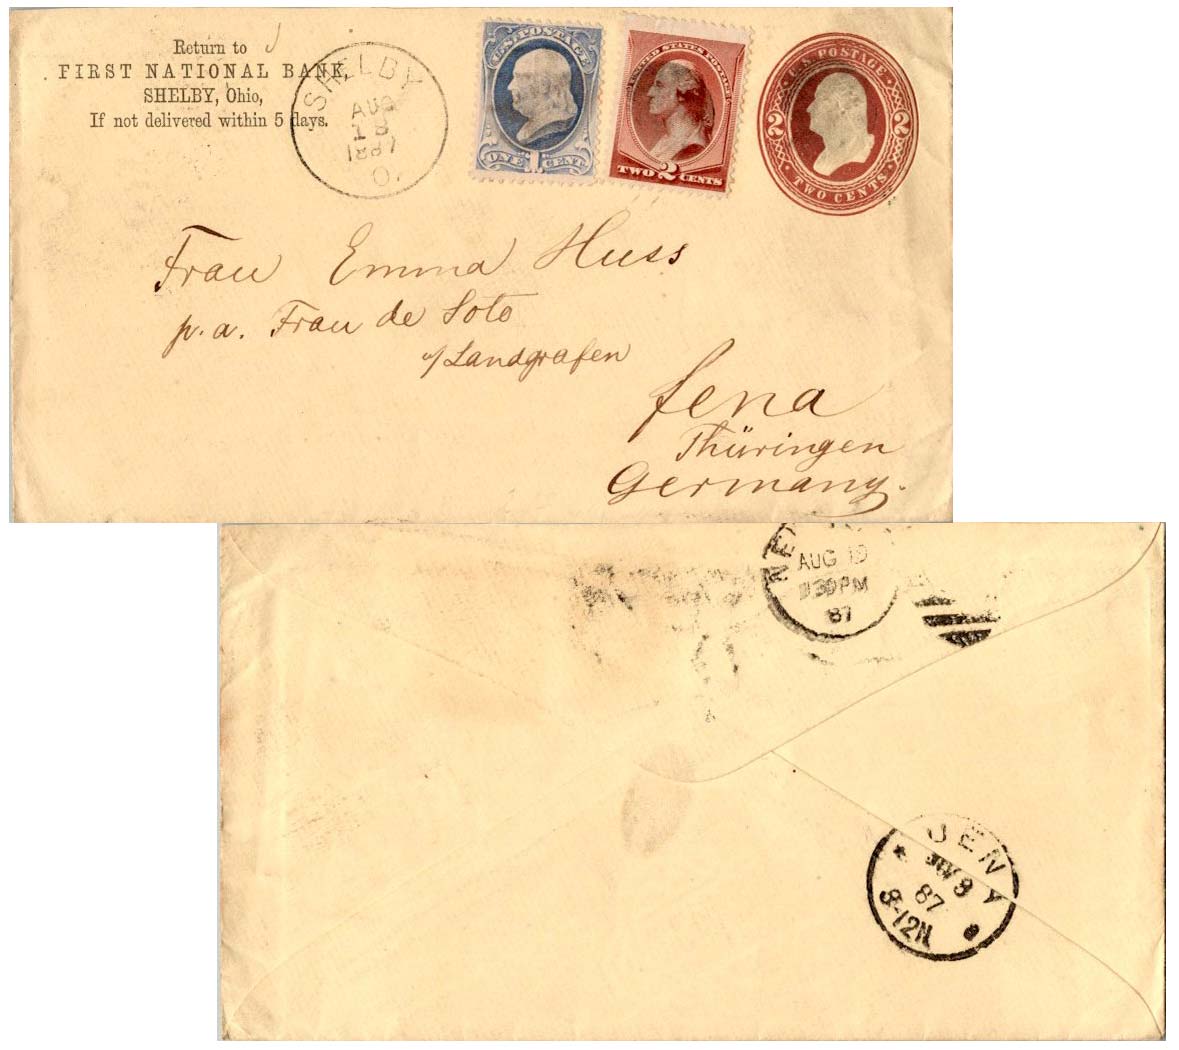 Return to
FIRST NATIONAL BANK,
SHELBY, Ohio,
If not delivered within 5 days.
SHELBY
AUG
18
1887
O.
U.S. POSTAGE
ONE 1 CENT
UNITED STATES POSTAGE
TWO 2 CENTS
U.S. POSTAGE
2 2
TWO CENTS
Frau Emma Huss
p.a. Frau de Soto
a/Landgrafen
Jena
Thüringen
Germany.
NE
AUG 19
30PM
87
JEN
9
87
8-12N